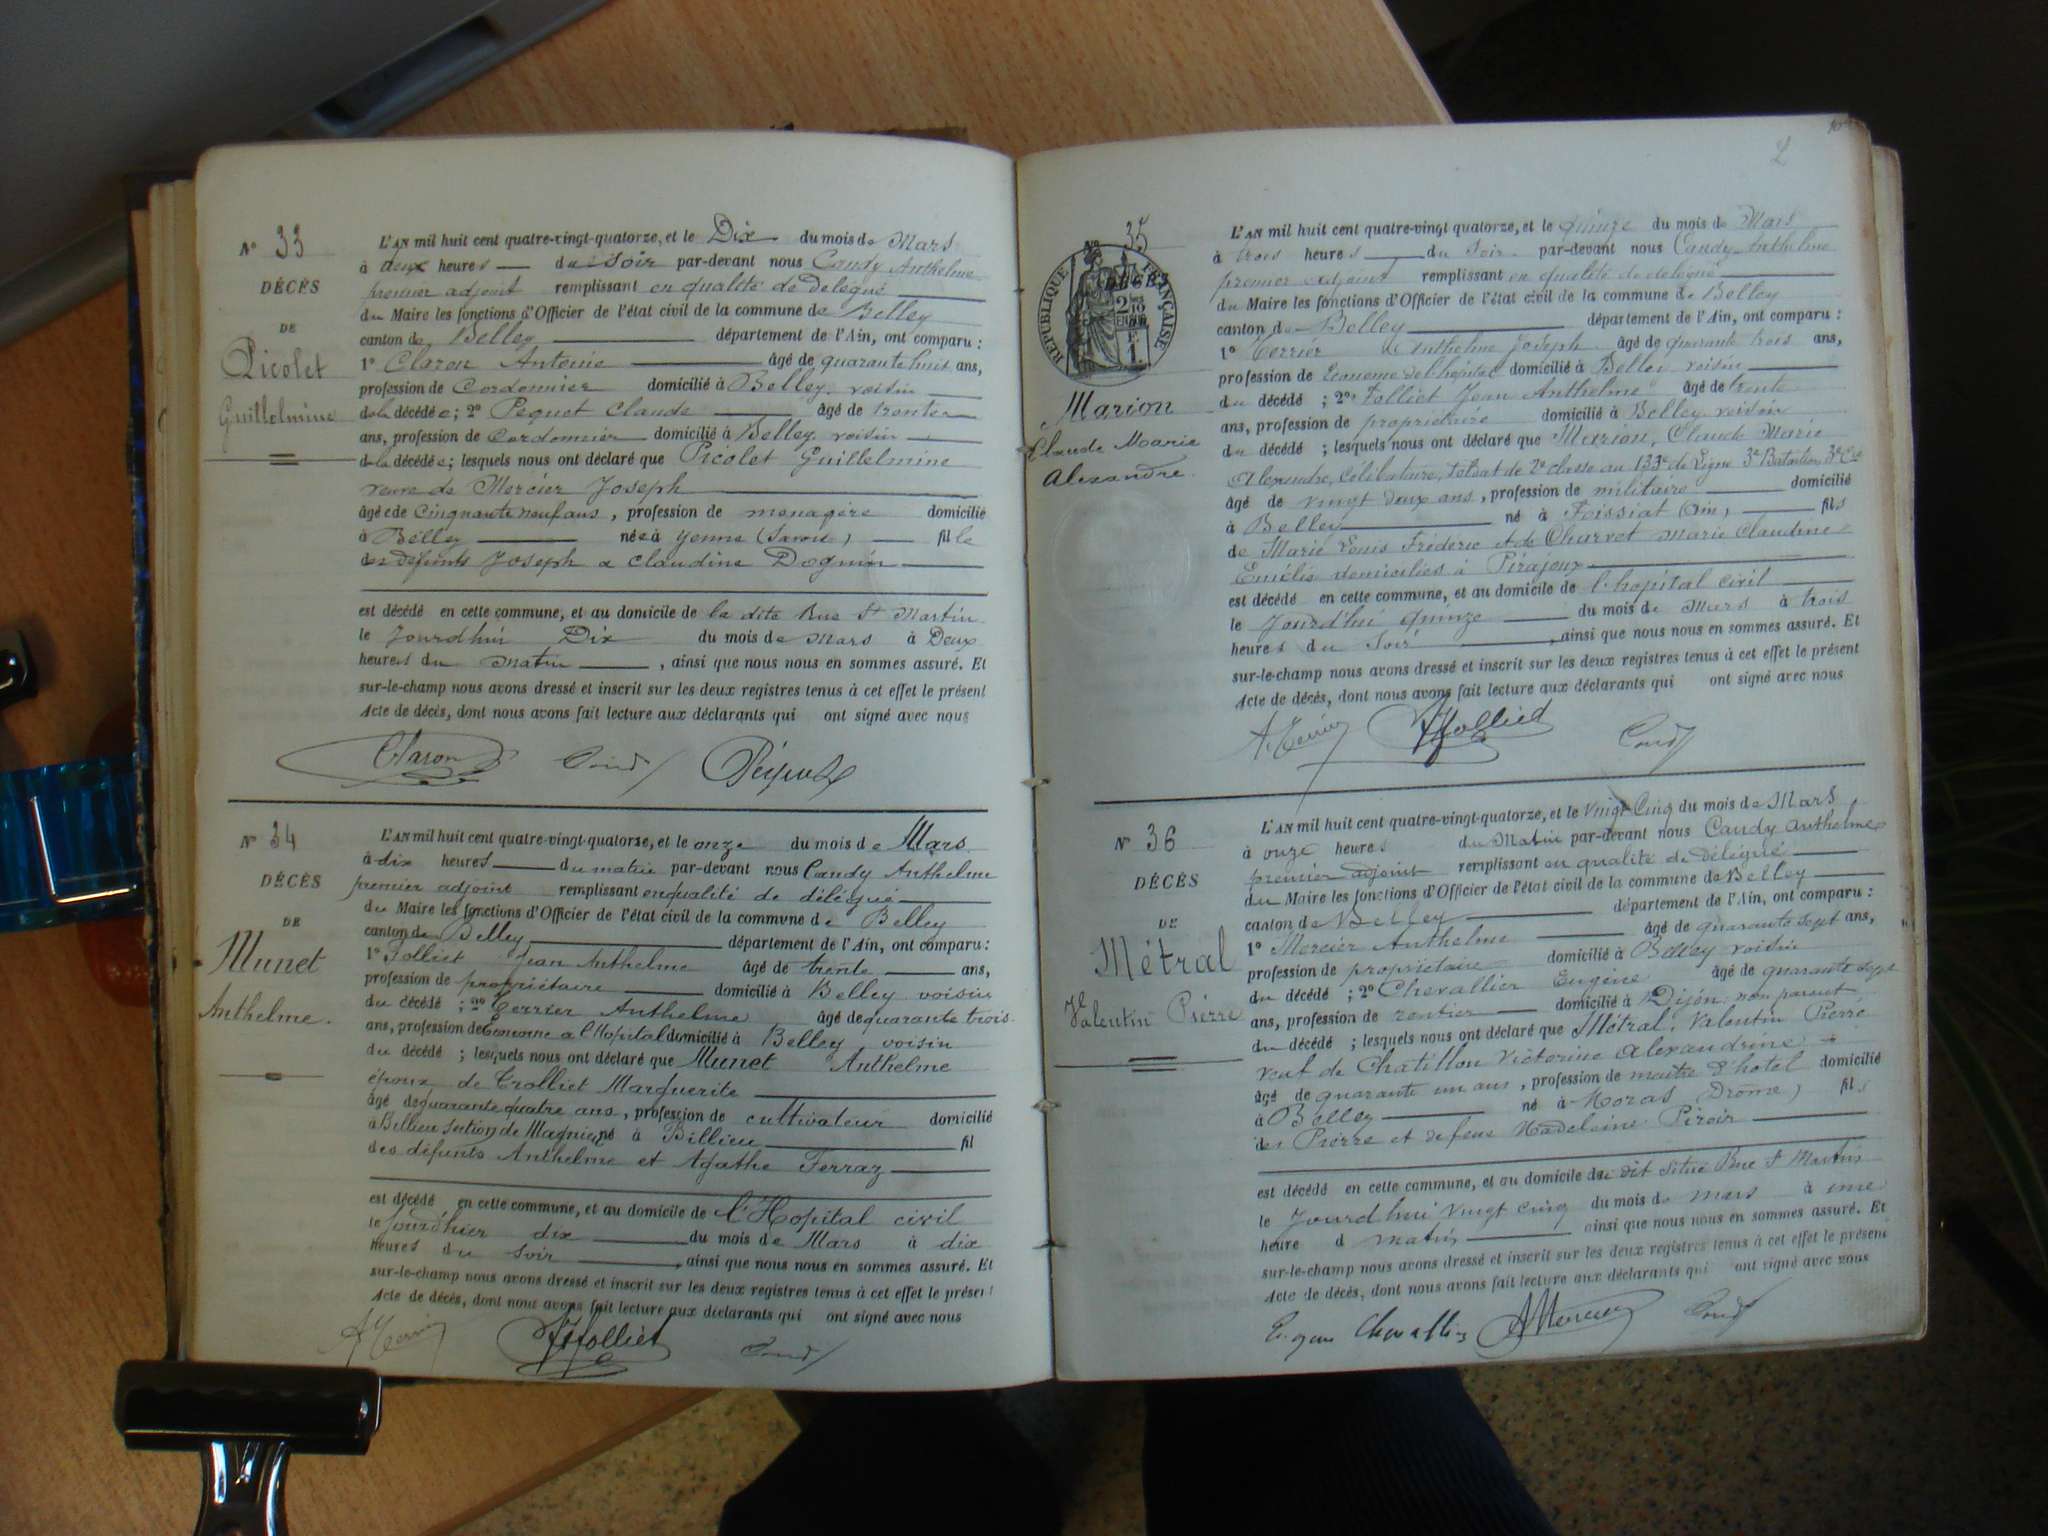 N° 33
DÉCÈS
DE
Picolet
Guillelmine
L'AN mil huit cent quatre-vingt-quatorze, et le Dix du mois de Mars
à deux heures du Soir par-devant nous Candy Anthelme
premier adjoint remplissant en qualité de délégué
du Maire les fonctions d'Officier de l'état civil de la commune de Belley
canton de Belley département de l'Ain, ont comparu :
1° Claron Antoine âgé de quarante huit ans,
profession de Cordonnier domicilié à Belley voisin
de la décédée ; 2° Pequet Claude âgé de trente
ans, profession de Cordonnier domicilié à Belley voisin
de la décédée ; lesquels nous ont déclaré que Picolet Guillelmine
veuve de Mercier Joseph
âgée de Cinquante neuf ans, profession de menagère domicilié
à Belley née à Yenne (Savoie) fille
des défunts Joseph & Claudine Dognin
est décédé en cette commune, et au domicile de la dite Rue St Martin
le Jourd'hui Dix du mois de Mars à Deux
heures du matin, ainsi que nous nous en sommes assuré. Et
sur-le-champ nous avons dressé et inscrit sur les deux registres tenus à cet effet le présent
Acte de décès, dont nous avons fait lecture aux déclarants qui ont signé avec nous
Claron Candy Péquet
N° 34
DÉCÈS
DE
Munet
Anthelme.
L'AN mil huit cent quatre-vingt-quatorze, et le onze du mois de Mars
à dix heures du matin par-devant nous Candy Anthelme
premier adjoint remplissant en qualité de délégué
du Maire les fonctions d'Officier de l'état civil de la commune de Belley
canton de Belley département de l'Ain, ont comparu :
1° Folliet Jean Anthelme âgé de trente ans,
profession de propriétaire domicilié à Belley voisin
du décédé ; 2° Terrier Anthelme âgé de quarante trois
ans, profession de Econome a l'Hopital domicilié à Belley voisin
du décédé ; lesquels nous ont déclaré que Munet Anthelme
époux de Trolliet Marguerite
âgé de quarante quatre ans, profession de cultivateur domicilié
à Billieu section de Magnieu né à Billieu fil
des défunts Anthelme et Agathe Ferraz
est décédé en cette commune, et au domicile de l'Hopital civil
le jourd'hier dix du mois de Mars à dix
heures du soir, ainsi que nous nous en sommes assuré. Et
sur-le-champ nous avons dressé et inscrit sur les deux registres tenus à cet effet le présent
Acte de décès, dont nous avons fait lecture aux déclarants qui ont signé avec nous
A Terrier JAfolliet Candy
2
N° 35
DÉCÈS
RÉPUBLIQUE FRANÇAISE
Marion
Claude Marie
Alexandre
L'AN mil huit cent quatre-vingt quatorze, et le quinze du mois de Mars
à trois heures du Soir par-devant nous Candy Anthelme
premier adjoint remplissant en qualité de délégué
du Maire les fonctions d'Officier de l'état civil de la commune de Belley
canton de Belley département de l'Ain, ont comparu :
1° Terrier Anthelme Joseph âgé de quarante trois ans,
profession de Econome de l'hôpital domicilié à Belley voisin
du décédé ; 2° Folliet Jean Anthelme âgé de trente
ans, profession de propriétaire domicilié à Belley voisin
du décédé ; lesquels nous ont déclaré que Marion, Claude Marie
Alexandre, Célibataire, soldat de 2e classe au 133e de Ligne 3e Bataillon 3e Cie
âgé de vingt deux ans, profession de militaire domicilié
à Belley né à Foissiat (Ain) fils
de Marie Louis Fréderic et de Charvet Marie Claudine
Emélie domiciliés à Pirajoux
est décédé en cette commune, et au domicile de l'hopital civil
le Jourd'hui quinze du mois de Mars à trois
heures du Soir, ainsi que nous nous en sommes assuré. Et
sur-le-champ nous avons dressé et inscrit sur les deux registres tenus à cet effet le présent
Acte de décès, dont nous avons fait lecture aux déclarants qui ont signé avec nous
A. Terrier JAfolliet Candy
N° 36
DÉCÈS
DE
Métral
Valentin Pierre
L'AN mil huit cent quatre-vingt-quatorze, et le vingt Cinq du mois de Mars
à onze heures du Matin par-devant nous Candy Anthelme
premier adjoint remplissant en qualité de délégué
du Maire les fonctions d'Officier de l'état civil de la commune de Belley
canton de Belley département de l'Ain, ont comparu :
1° Mercier Anthelme âgé de quarante sept ans,
profession de propriétaire domicilié à Belley voisin
du décédé ; 2° Chevallier Eugène âgé de quarante sept
ans, profession de rentier domicilié à Dijon non parent
du décédé ; lesquels nous ont déclaré que Métral, Valentin Pierre
veuf de Chatillon Victorine Alexandrine
âgé de quarante un ans, profession de maitre d'hotel domicilié
à Belley né à Moras Drôme) fils
des Pierre et de feue Madeleine Piroir
est décédé en cette commune, et au domicile du dit situé Rue St Martin
le Jourd'hui vingt cinq du mois de mars à une
heure d matin ainsi que nous nous en sommes assuré. Et
sur-le-champ nous avons dressé et inscrit sur les deux registres tenus à cet effet le présent
Acte de décès, dont nous avons fait lecture aux déclarants qui ont signé avec nous
Eugène Chevallier AMercier Candy